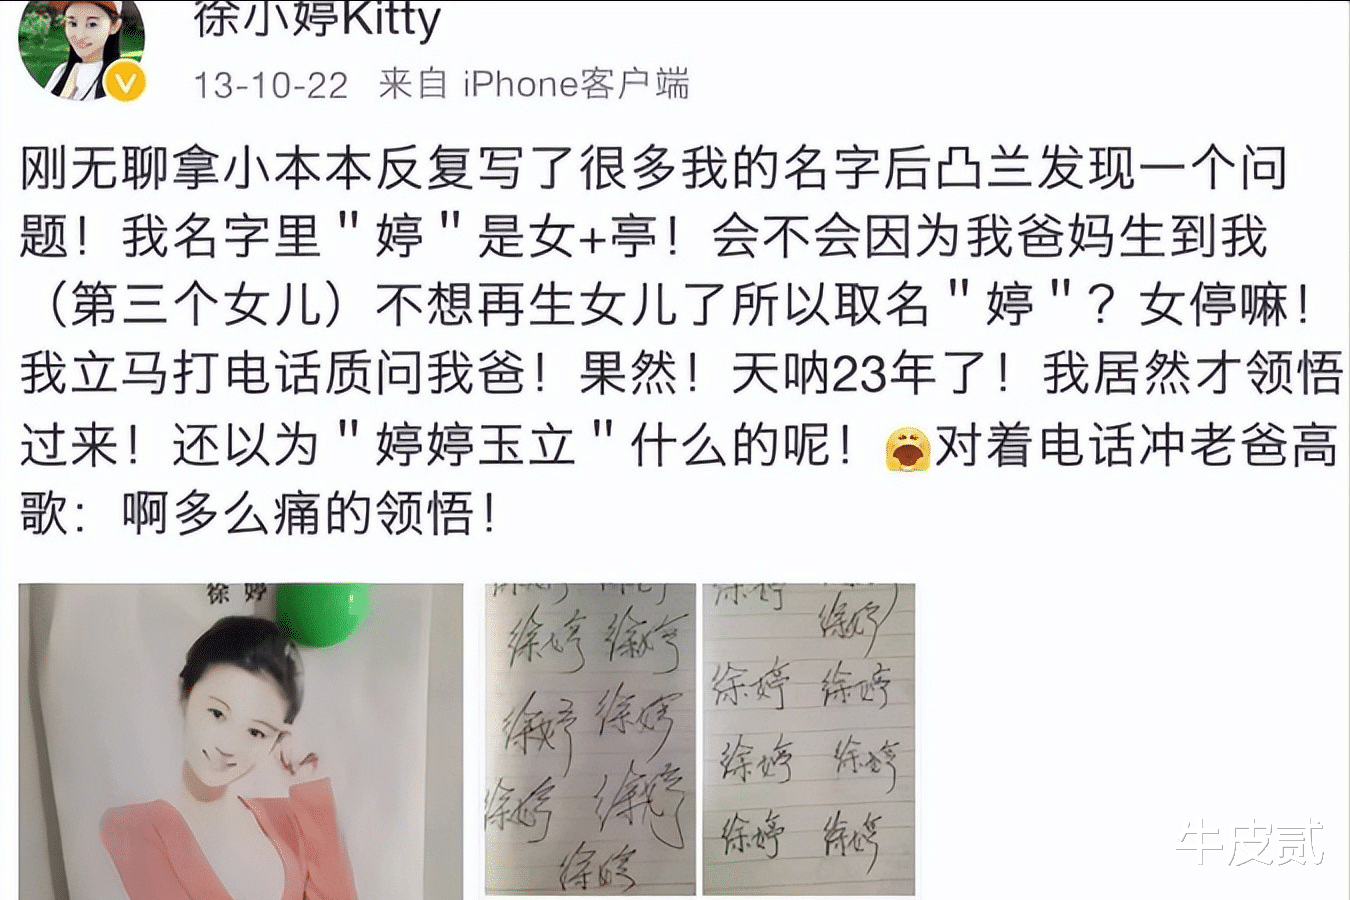 徐小婷Kitty
13-10-22 来自 iPhone客户端
刚无聊拿小本本反复写了很多我的名字后凸兰发现一个问
题！我名字里"婷"是女+亭！会不会因为我爸妈生到我
（第三个女儿）不想再生女儿了所以取名"婷"？女停嘛！
我立马打电话质问我爸！果然！天呐23年了！我居然才领悟
过来！还以为"婷婷玉立"什么的呢！对着电话冲老爸高
歌：啊多么痛的领悟！
徐婷
徐婷 徐婷
徐婷 徐婷
徐婷 徐婷
徐婷
徐婷
徐婷
徐婷 徐婷
徐婷 徐婷
徐婷 徐婷
牛皮贰